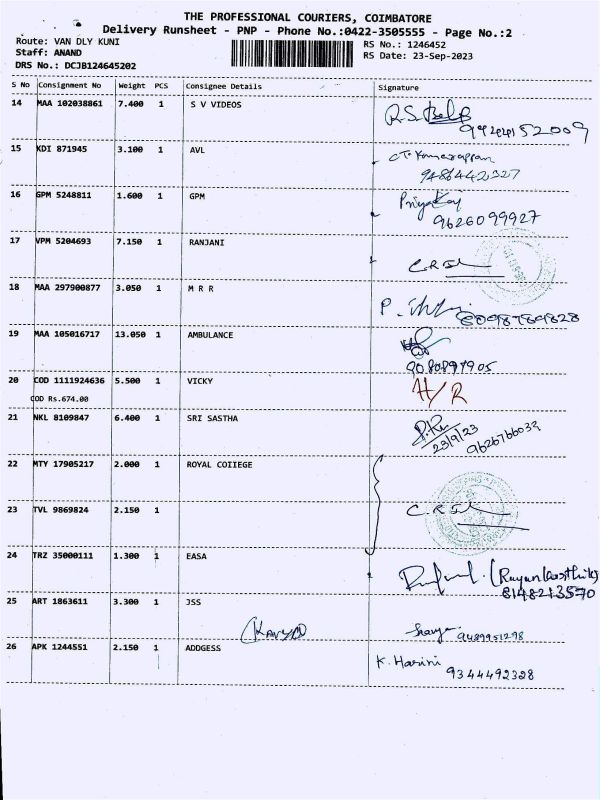 THE PROFESSIONAL COURIERS, COIMBATORE
Delivery Runsheet - PNP - Phone No.:0422-3505555 - Page No.:2
Route: VAN DLY KUNI RS No.: 1246452
Staff: ANAND RS Date: 23-Sep-2023
DRS No.: DCJB124645202
S No Consignment No Weight PCS Consignee Details Signature
14 MAA 102038861 7.400 1 S V VIDEOS
15 KDI 871945 3.100 1 AVL
9486442327
16 GPM 5248811 1.600 1 GPM
9626099927
17 VPM 5204693 7.150 1 RANJANI
18 MAA 297900877 3.050 1 M R R
19 MAA 105016717 13.050 1 AMBULANCE
20 COD 1111924636 5.500 1 VICKY H/R
COD Rs.674.00
21 NKL 8109847 6.400 1 SRI SASTHA
23/9/23 9626766032
22 MTY 17905217 2.000 1 ROYAL COIIEGE
23 TVL 9869824 2.150 1
24 TRZ 35000111 1.300 1 EASA
8148213570
25 ART 1863611 3.300 1 JSS
9489951298
26 APK 1244551 2.150 1 ADDGESS K. Harini
9344492328